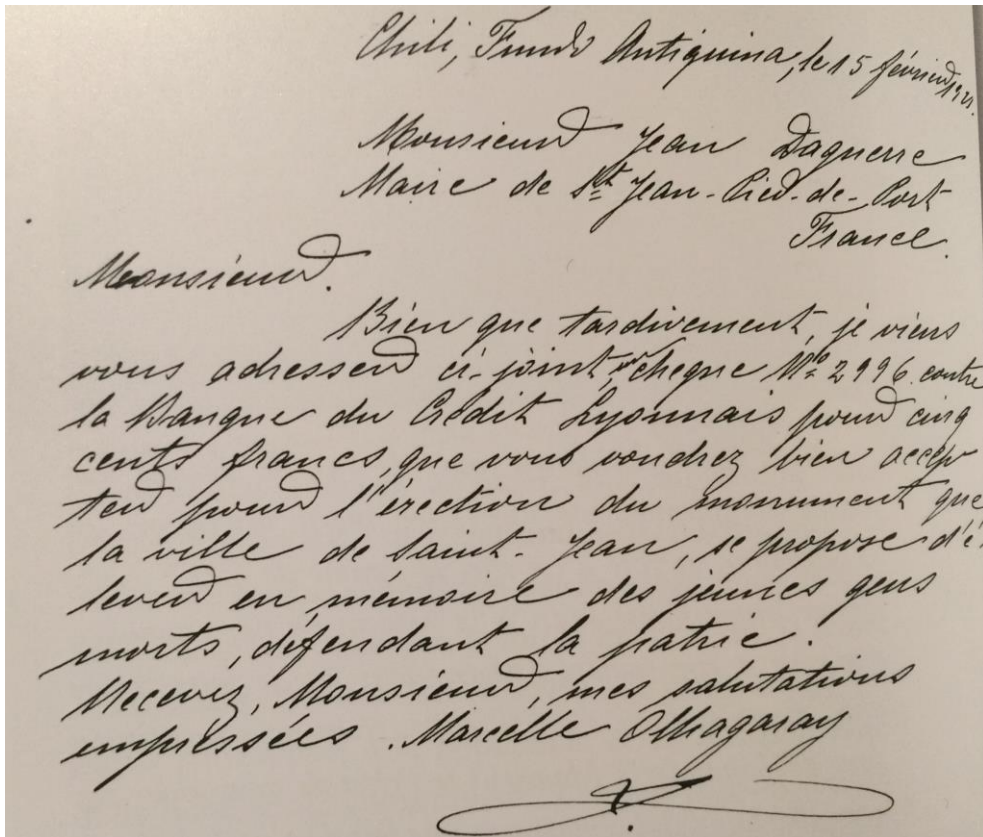 Chili, Fundo Antiquina, le 15 février 1921.
Monsieur Jean Daguerre
Maire de St Jean-Pied-de-Port
France.
Monsieur.
Bien que tardivement, je viens
vous adresser ci-joint, un chèque No 2996 contre
la Banque du Crédit Lyonnais pour cinq
cents francs, que vous voudrez bien accep
ter pour l'érection du monument que
la ville de Saint-Jean, se propose d'é-
lever en mémoire des jeunes gens
morts, défendant la patrie.
Recevez, Monsieur, mes salutations
empressées. Marcelle Olhagaray